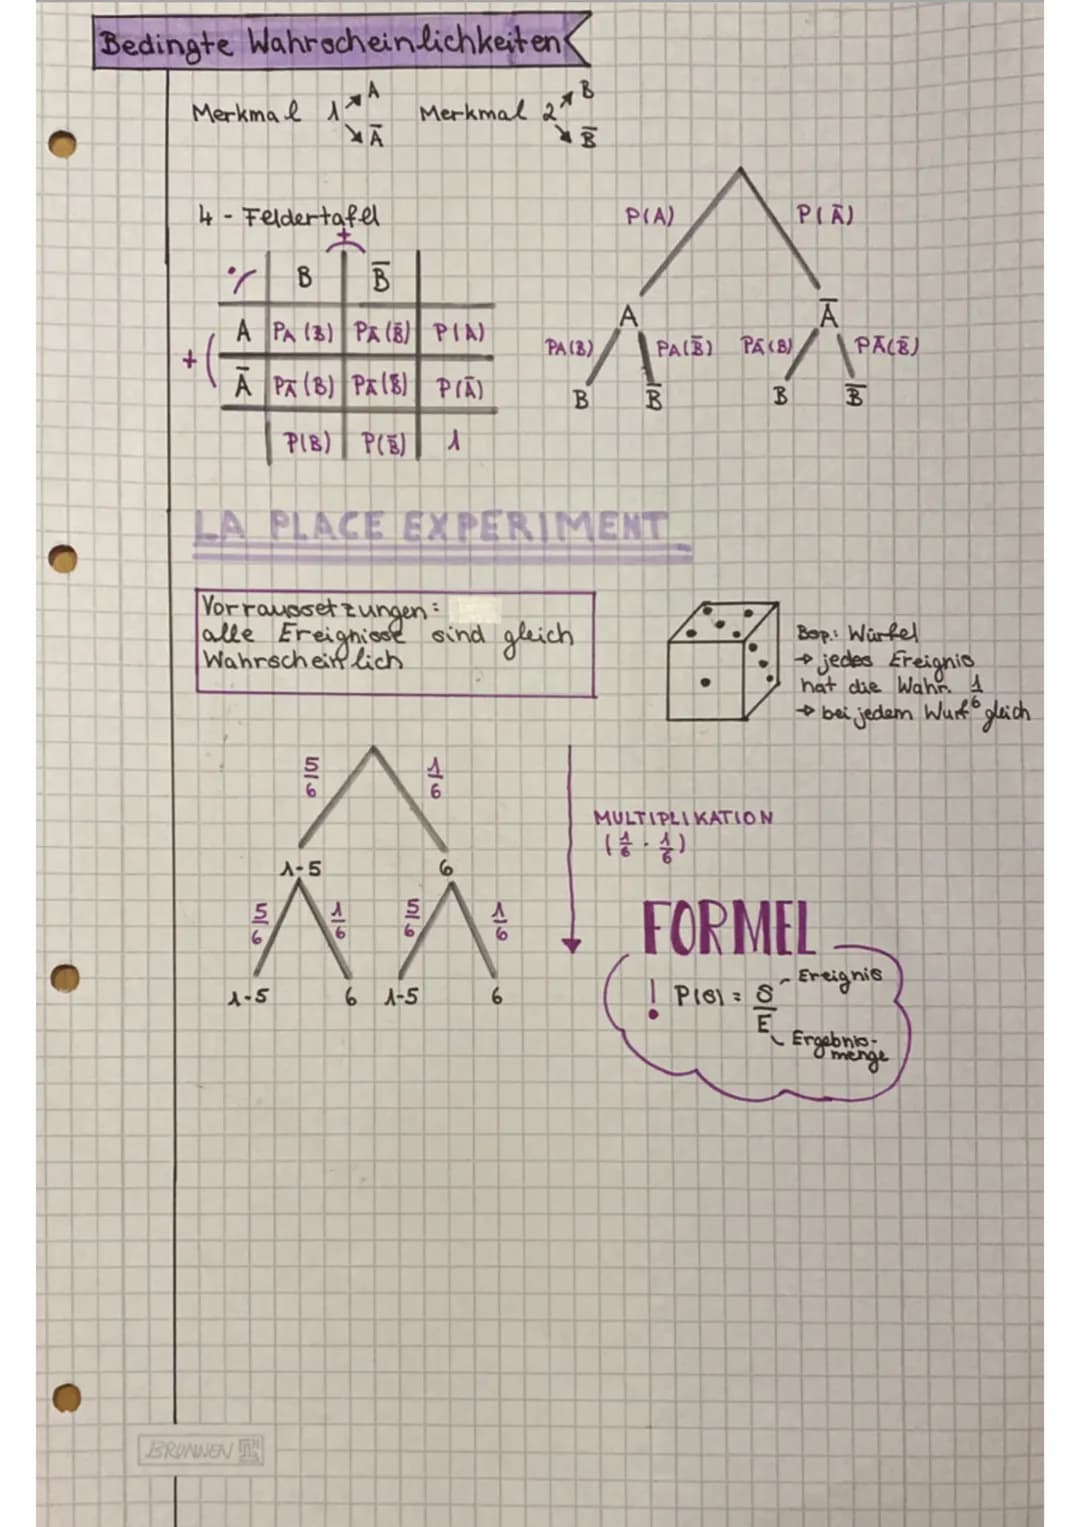 Bedingte Wahrscheinlichkeiten
Merkmal 1 A Ā
Merkmal 2 B B̄
4 - Feldertafel
+
% B B̄
A PA (B) PĀ (B̄) P(A)
+ ( Ā PĀ (B) PĀ (B̄) P(Ā)
P(B) P(B̄) 1
P(A) P(Ā)
A Ā
PA(B) PA(B̄) PĀ(B) PĀ(B̄)
B B̄ B B̄
LA PLACE EXPERIMENT
Vorraussetzungen:
alle Ereignisse sind gleich
Wahrscheinlich
Bsp.: Würfel
→ jedes Ereignis
hat die Wahr. 1/6
→ bei jedem Wurf gleich
5/6 1/6
1-5 6
5/6 1/6 5/6 1/6
1-5 6 1-5 6
MULTIPLIKATION
(1/6 · 1/6)
FORMEL
! P(S) = S/E
Ereignis
Ergebnis-
menge
BRUNNEN